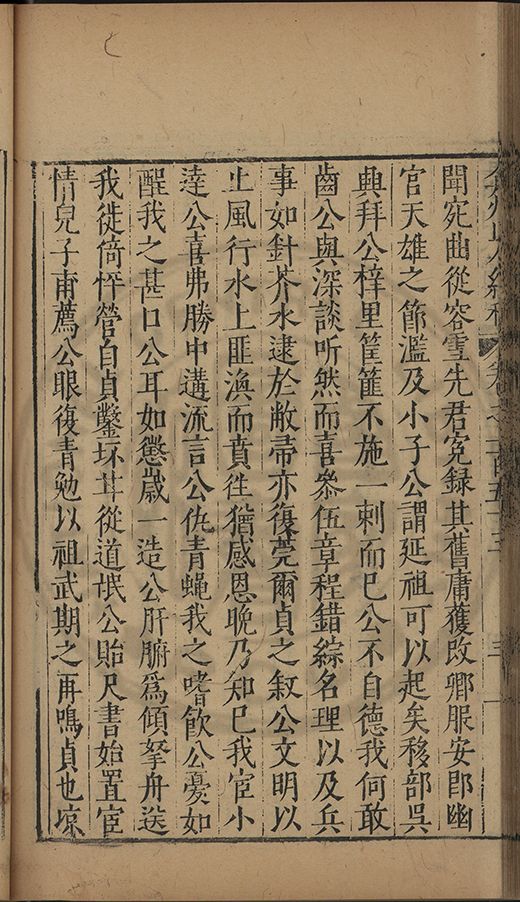 弇州山人續稿 卷之一百五十三 三
聞宛曲從容雪先君寃録其舊庸獲改卿服安郎幽
官天雄之節濫及小子公謂延祖可以起矣移部吳
興拜公梓里筐篚不施一刺而已公不自德我何敢
齒公與深談听然而喜叅伍章程錯綜名理以及兵
事如針芥水逮於敝帚亦復莞爾貞之叙公文明以
止風行水上匪渙而賁徃猶感恩晚乃知巳我宦小
達公喜弗勝中遘流言公仇青蝇我之嗜飲公憂如
酲我之甚口公耳如懲歲一造公肝腑為傾拏舟送
我徙倚怦營自貞鑿坏苴從道氓公貽尺書始置宦
情兒子甫薦公眼復青勉以祖武期之再鳴貞也凉